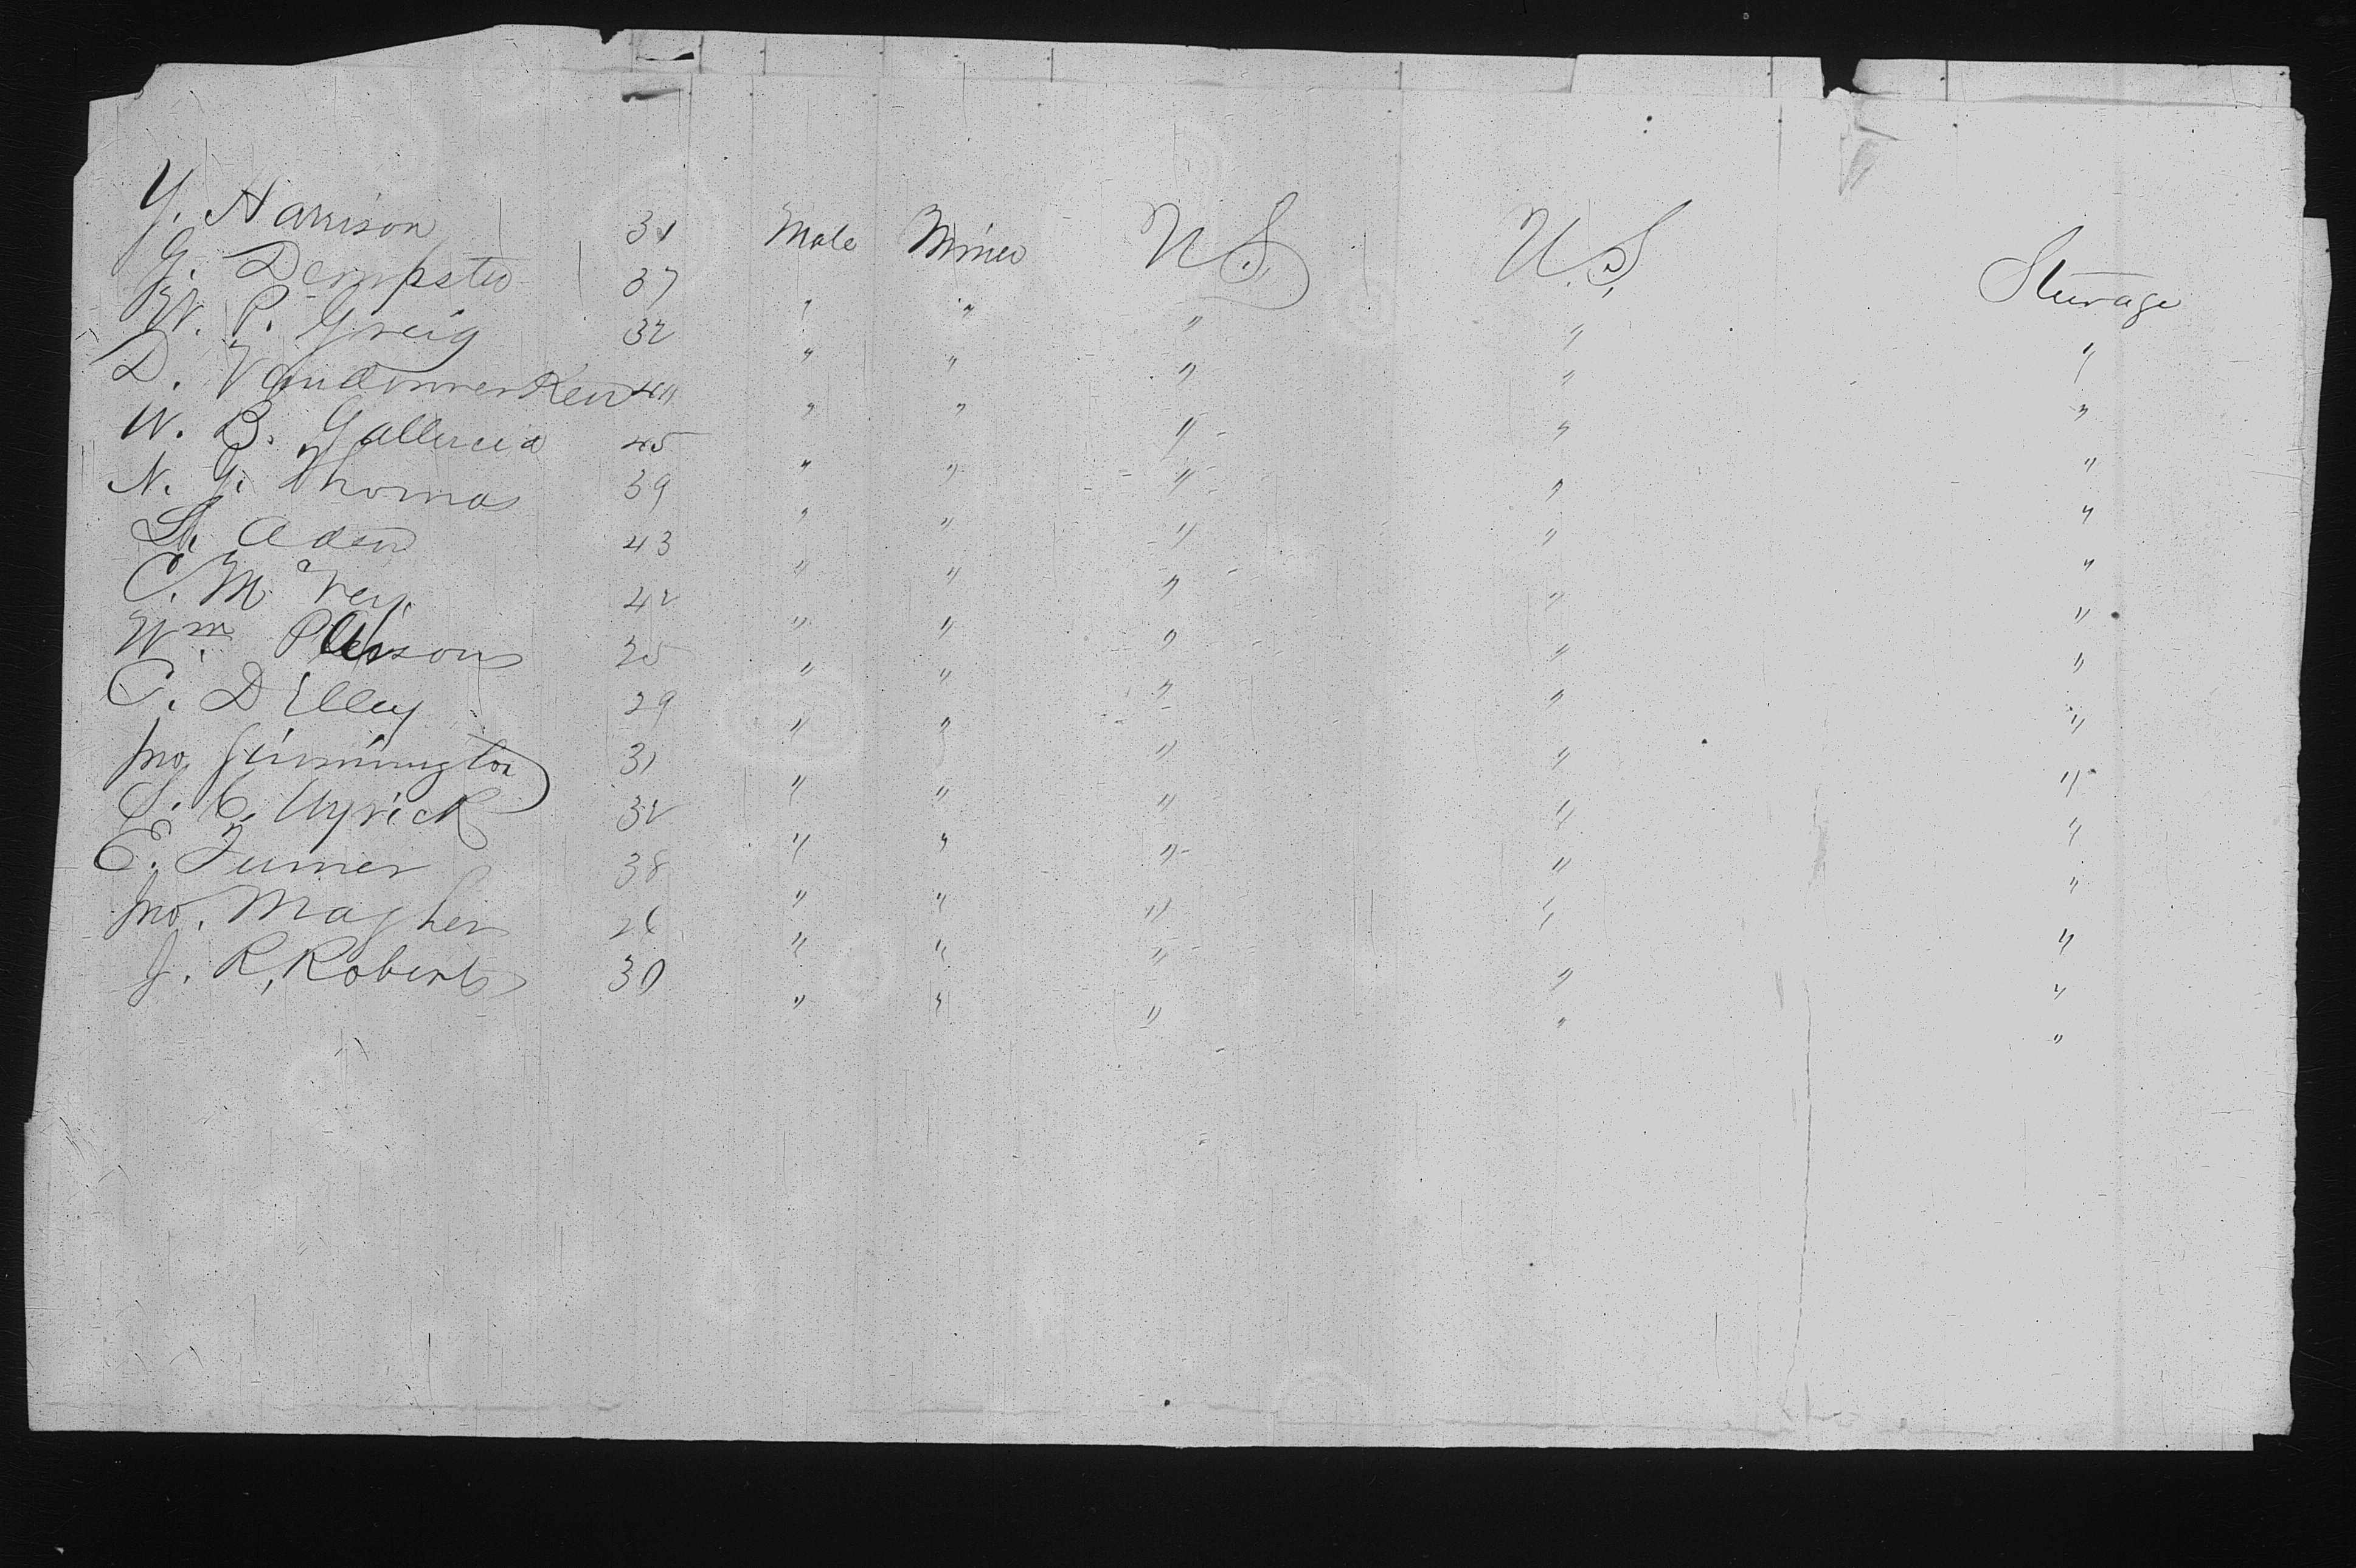 Y. Harrison 31 Male Miner U.S. U.S. Steerage
G. Dempster 37 " " " " "
W. P. Greig 32 " " " " "
D. 40 " " " " "
W. B. 45 " " " " "
N. G. Thomas 39 " " " " "
Aden 43 " " " " "
C. Mc Vey 42 " " " " "
Wm. Parsons 25 " " " " "
C. D Elley 29 " " " " "
Jno. Jinnington 31 " " " " "
S. C. Uyrick 32 " " " " "
E. Turner 38 " " " " "
Jno. Magher 26 " " " " "
J. R. Roberts 30 " " " " "